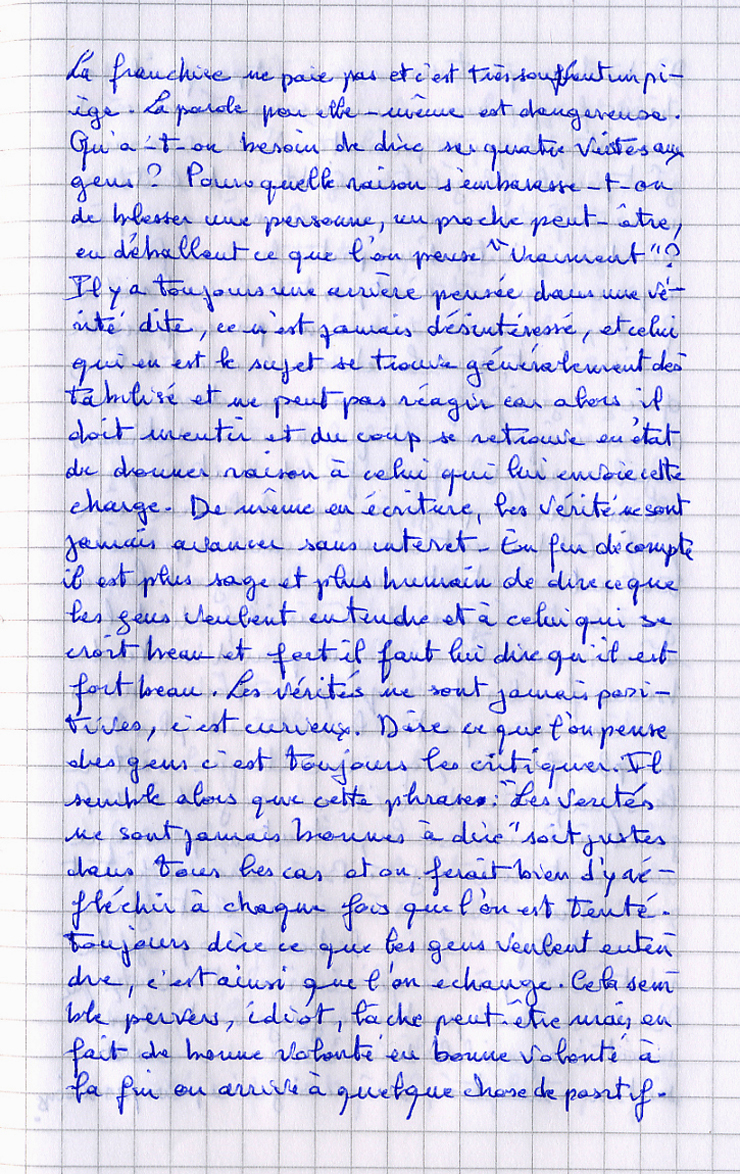 La franchise ne paie pas et c'est très souvent un pi-
ège. La parole par elle-même est dangereuse.
Qu'a-t-on besoin de dire ses quatre vérités aux
gens ? Pour quelle raison s'embarasse-t-on
de blesser une personne, un proche peut-être,
en déballent ce que l'on pense "vraiment" ?
Il y a toujours une arrière pensée dans une vé-
rité dite, ce n'est jamais désintéressé, et celui
qui en est le sujet se trouve généralement dés
tabilisé et ne peut pas réagir car alors il
doit mentir et du coup se retrouve en état
de donner raison à celui qui lui envoie cette
charge. De même en écriture, les vérité ne sont
jamais avancer sans intéret. En fin de compte
il est plus sage et plus humain de dire ce que
les gens veulent entendre et à celui qui se
croit beau et fort il faut lui dire qu'il est
fort beau. Les vérités ne sont jamais posi-
tives, c'est curieux. Dire ce que l'on pense
des gens c'est toujours les critiquer. Il
semble alors que cette phrase : "Les vérités
ne sont jamais bonnes à dire" soit justes
dans tous les cas et on ferait bien d'y ré-
fléchir à chaque fois que l'on est tenté.
Toujours dire ce que les gens veulent enten
dre, c'est ainsi que l'on echange. Cela sem
ble pervers, idiot, lache peut-être mais en
fait de bonne volonté en bonne volonté à
la fin on arrive à quelque chose de positif.